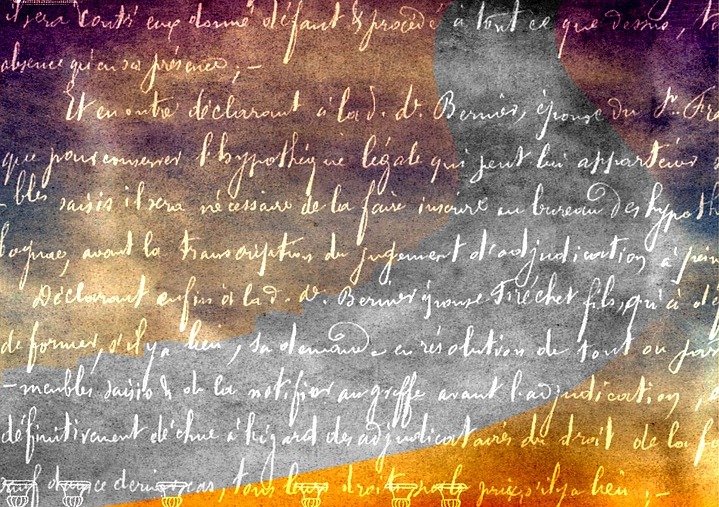 il sera contr' eux donné défaut & procédé à tout ce que dessus, t
absence qu'en sa présence; —
Et en outre déclarant à lad. de. Bernier, épouse du Sr. Fré
que pour conserver l'hypothèque légale qui peut lui appartenir s
bles saisis il sera nécessaire de la faire inscrire au bureau des hypoth
avant la transcription du jugement d'adjudication à pein
Déclarant enfin à lad. de. Bernier épouse Fréchet fils, qu'à dé
de former, s'il y a lieu, sa demande en résolution de tout ou par
-meubles saisis & de la notifier au greffe avant l'adjudication,
définitivement déchue à l'égard des adjudicataires du droit de la fo
dans ce dernier cas, tous leurs droits sur le prix, s'il y a lieu; —